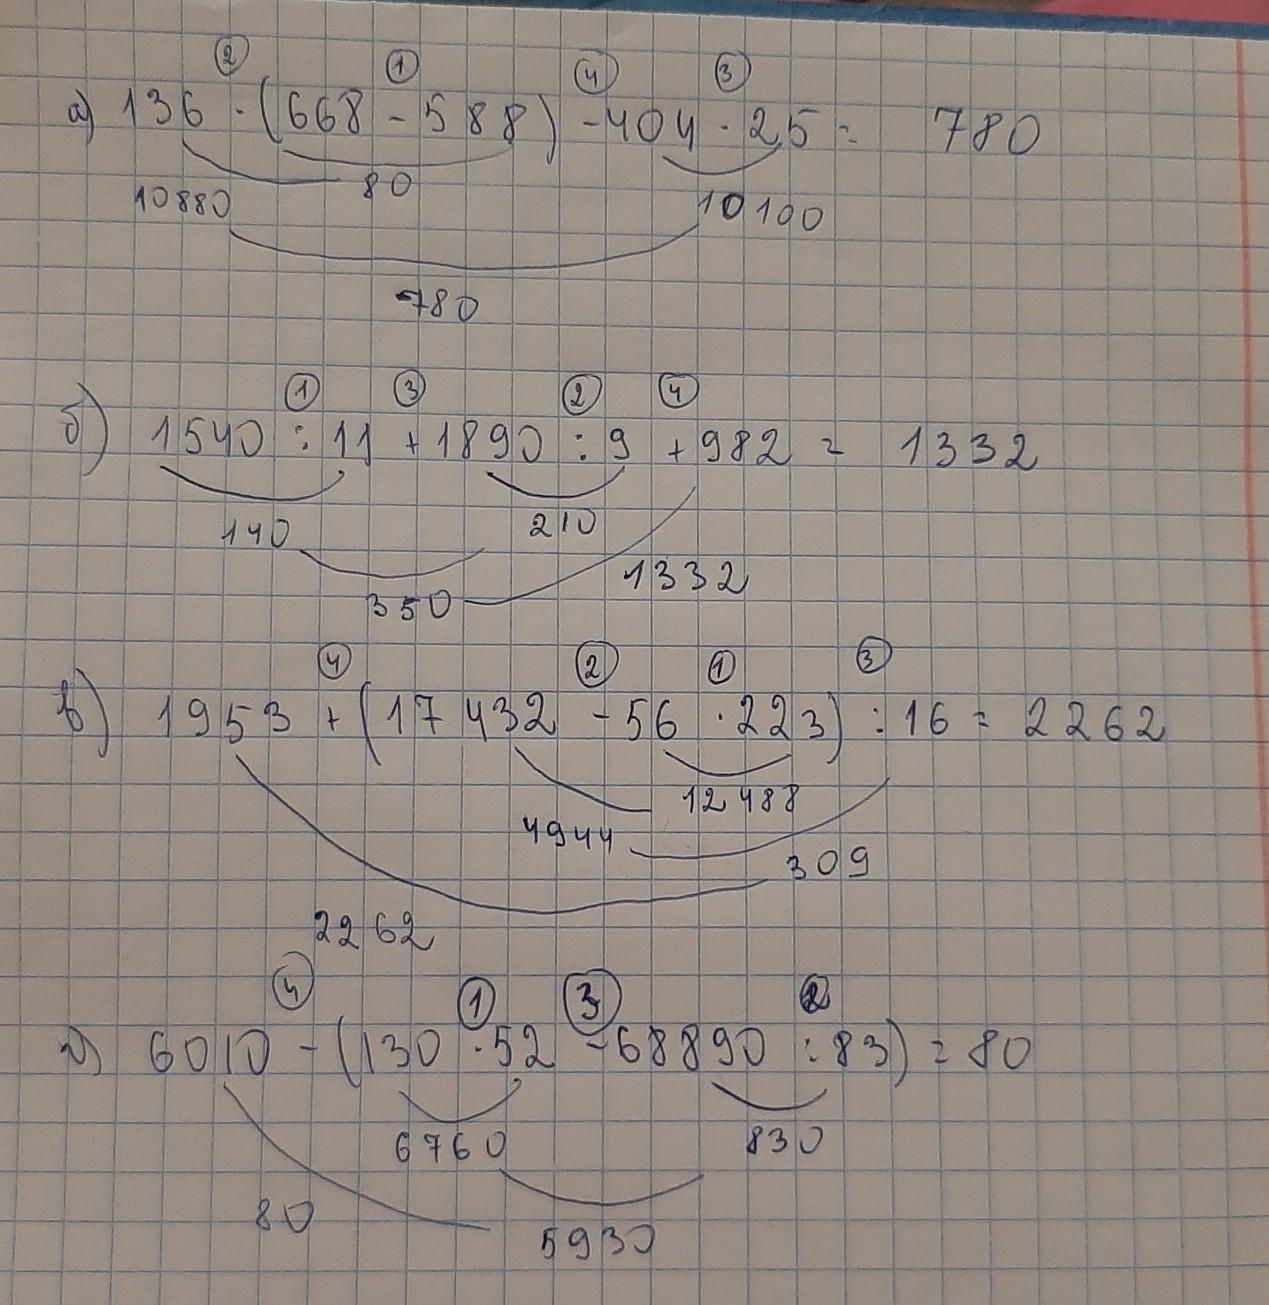 ② ① ④ ③
а) 136 · (668 - 588) - 404 · 25 = 780
80
10880 10100
780
① ③ ② ④
б) 1540 : 11 + 1890 : 9 + 982 = 1332
140 210
350 1332
④ ② ① ③
в) 1953 + (17 432 - 56 · 223) : 16 = 2262
12 488
4944
309
2262
④ ① ③ ②
г) 6010 - (130 · 52 - 68890 : 83) = 80
6760 830
80 5930